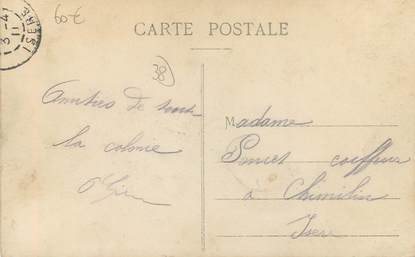 60€
CARTE POSTALE
3 -4
11
ISERE
38
Amitiés de toute
la colonie
Madame
coiffeur
à Chimilin
Isère